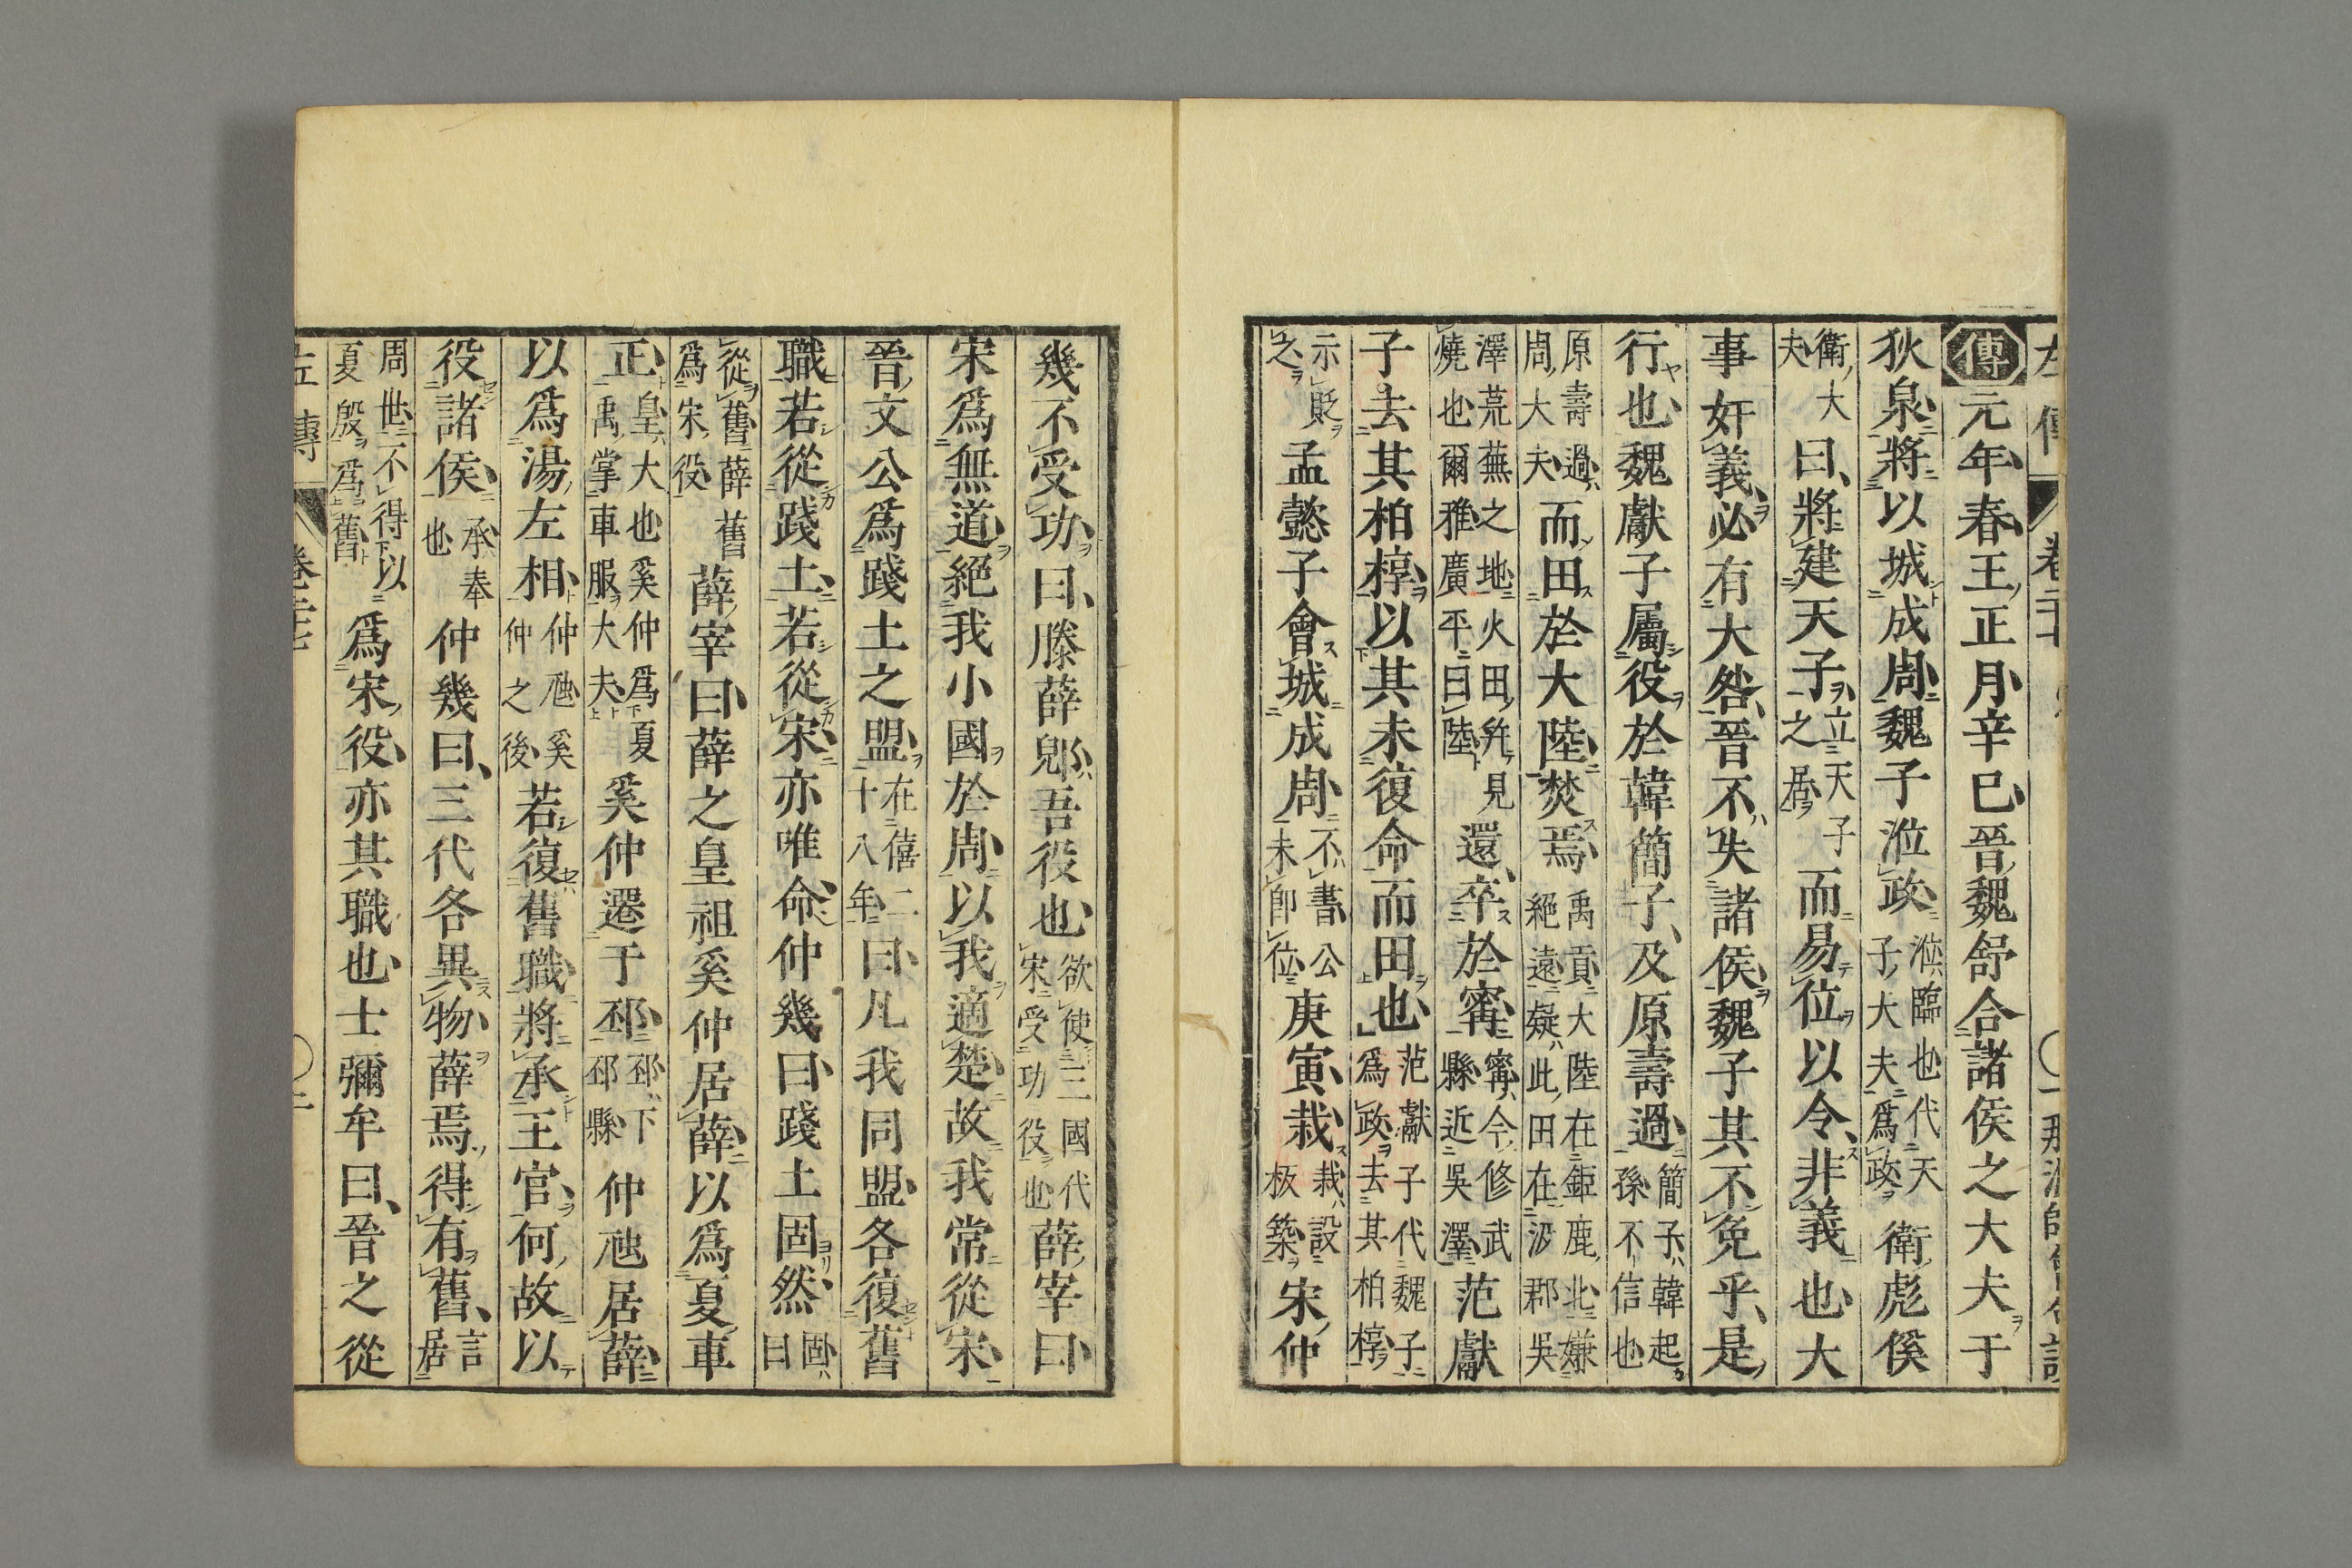 傳元年春王正月辛巳晉魏舒合諸侯之大夫于
狄泉將以城成周魏子涖政涖臨也代天子大夫爲政衛彪傒
衛大夫曰將建天子立天子之居而易位以令非義也大
事奸義必有大咎晉不失諸侯魏子其不免乎是
行也魏獻子屬役於韓簡子及原壽過簡子韓起孫不信也
原壽過周大夫而田於大陸焚焉禹貢大陸在鉅鹿北嫌絕遠疑此田在汲郡吳
澤荒蕪之地火田竝見燒也爾雅廣平曰陸還卒於甯甯今修武縣近吳澤范獻
子去其柏椁以其未復命而田也范獻子代魏子爲政去其柏椁
示貶之孟懿子會城成周不書公未即位庚寅栽栽設板築宋仲
幾不受功曰滕薛郳吾役也欲使三國代宋受功役也薛宰曰
宋爲無道絕我小國於周以我適楚故我常從宋
晉文公爲踐土之盟在僖二十八年曰凡我同盟各復舊
職若從踐土若從宋亦唯命仲幾曰踐土固然固曰
從舊薛舊爲宋役薛宰曰薛之皇祖奚仲居薛以爲夏車
正皇大也奚仲爲夏禹掌車服大夫奚仲遷于邳邳下邳縣仲虺居薛
以爲湯左相仲虺奚仲之後若復舊職將承王官何故以
役諸侯承奉也仲幾曰三代各異物薛焉得有舊言居
周世不得以夏殷爲舊爲宋役亦其職也士彌牟曰晉之從
左傳
卷二十七
二